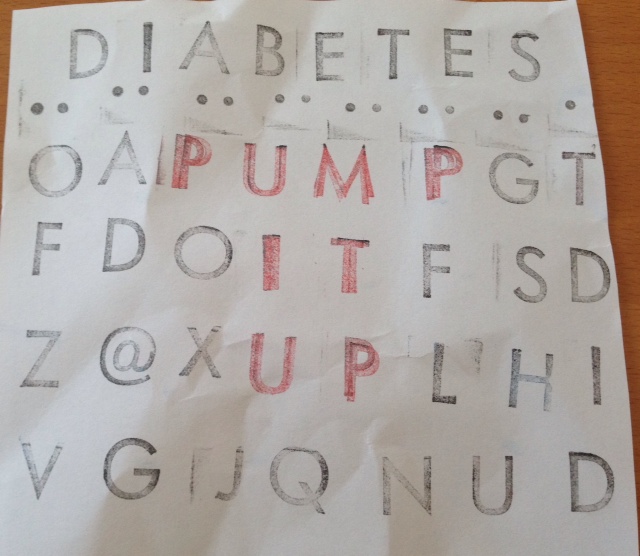 DIABETES
OAPUMPGT
FDOITFSD
Z@XUPLHI
VGIJQNUD